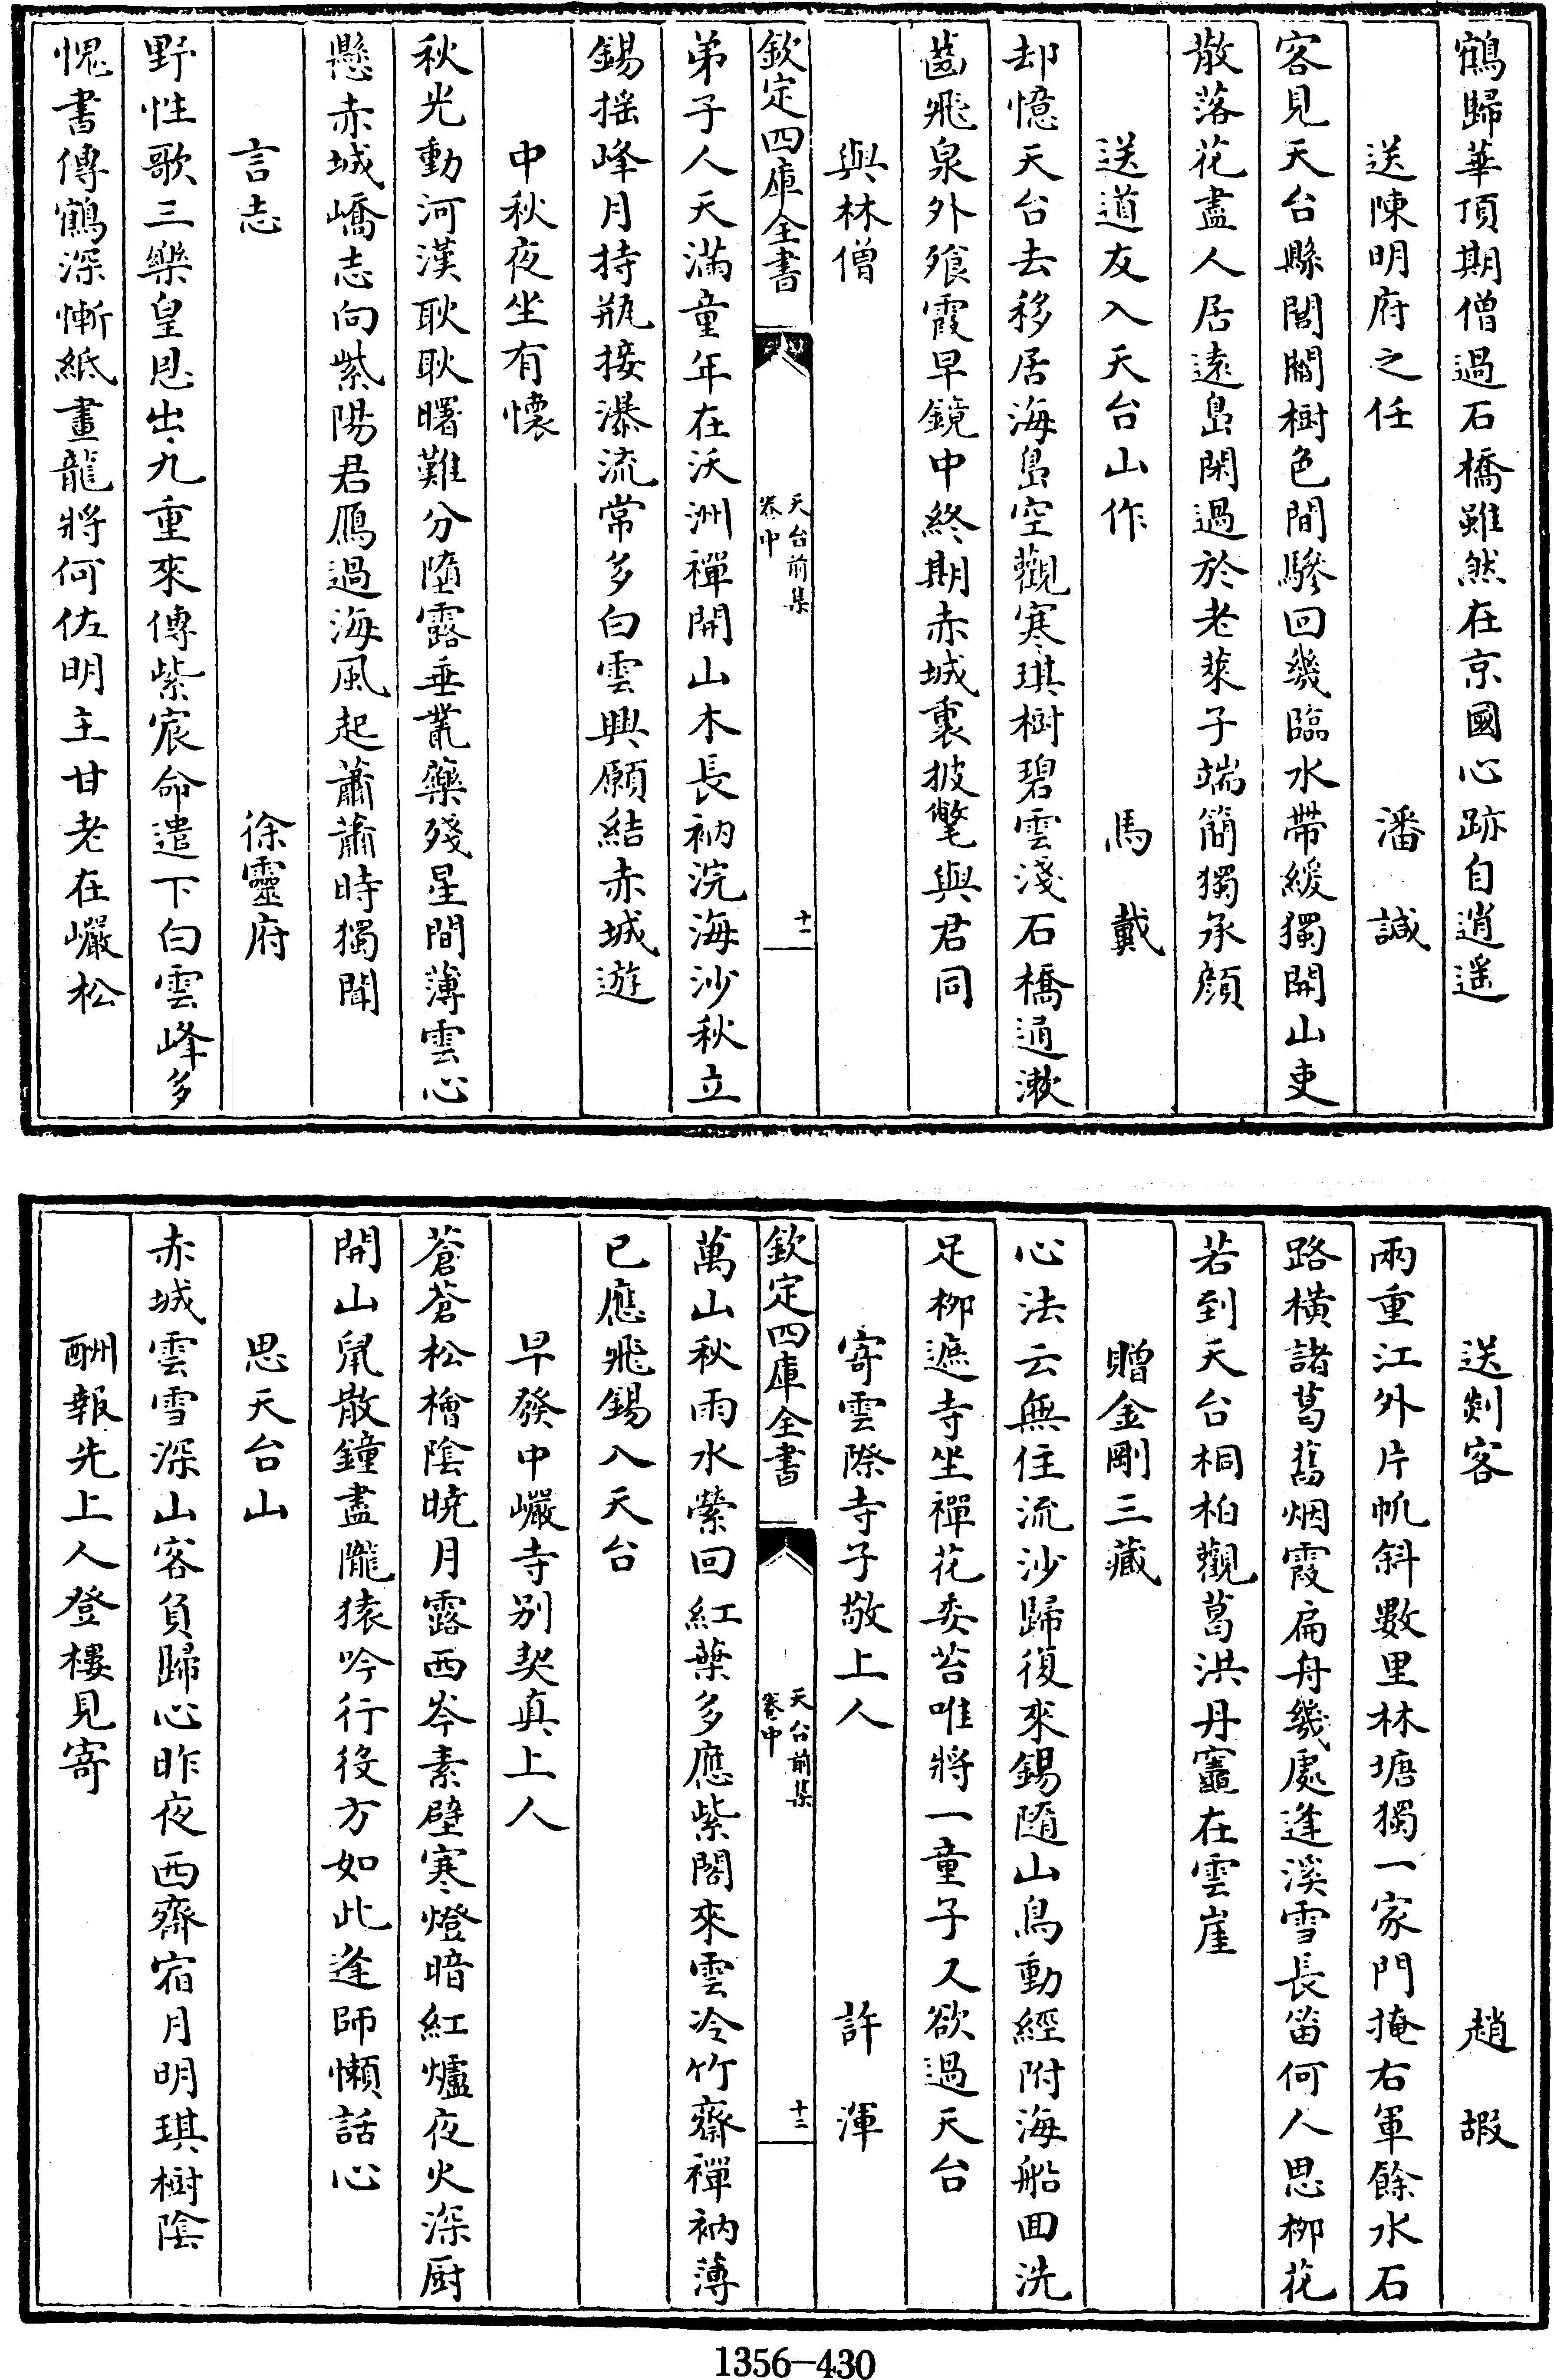 鶴歸華頂期僧過石橋雖然在京國心跡自逍遥
送陳明府之任　潘誠
客見天台縣閭閻樹色間驂回幾臨水帶緩獨開山吏
散落花盡人居遠島閑過於老萊子端簡獨承顔
送道友入天台山作　馬戴
却憶天台去移居海島空觀寒琪樹碧雲淺石橋通漱
齒飛泉外飱霞早鏡中終期赤城裏披氅與君同
與林僧
欽定四庫全書　天台前集卷中　十一
弟子人天滿童年在沃洲禪開山木長衲浣海沙秋立
錫摇峰月持瓶接瀑流常多白雲興願結赤城遊
中秋夜坐有懷
秋光動河漢耿耿曙難分墮露垂叢藥殘星間薄雲心
懸赤城嶠志向紫陽君鴈過海風起蕭蕭時獨聞
言志　徐靈府
野性歌三樂皇恩出九重來傳紫宸命遣下白雲峰多
愧書傳鶴深慚紙畫龍將何佐明主甘老在巖松
送剡客　趙嘏
兩重江外片帆斜數里林塘獨一家門掩右軍餘水石
路橫諸葛舊烟霞扁舟幾處逢溪雪長笛何人思柳花
若到天台桐柏觀葛洪丹竈在雲崖
贈金剛三藏
心法云無住流沙歸復來錫隨山鳥動經附海船囬洗
足柳遮寺坐禪花委苔唯將一童子又欲過天台
寄雲際寺子敬上人　許渾
欽定四庫全書　天台前集卷中　十二
萬山秋雨水縈回紅葉多應紫閣來雲冷竹齋禪衲薄
已應飛錫入天台
早發中巖寺别契真上人
蒼蒼松檜陰曉月露西岑素壁寒燈暗紅爐夜火深厨
開山鼠散鐘盡隴猿吟行役方如此逢師懶話心
思天台山
赤城雲雪深山客負歸心昨夜西齋宿月明琪樹陰
酬報先上人登樓見寄
1356-430